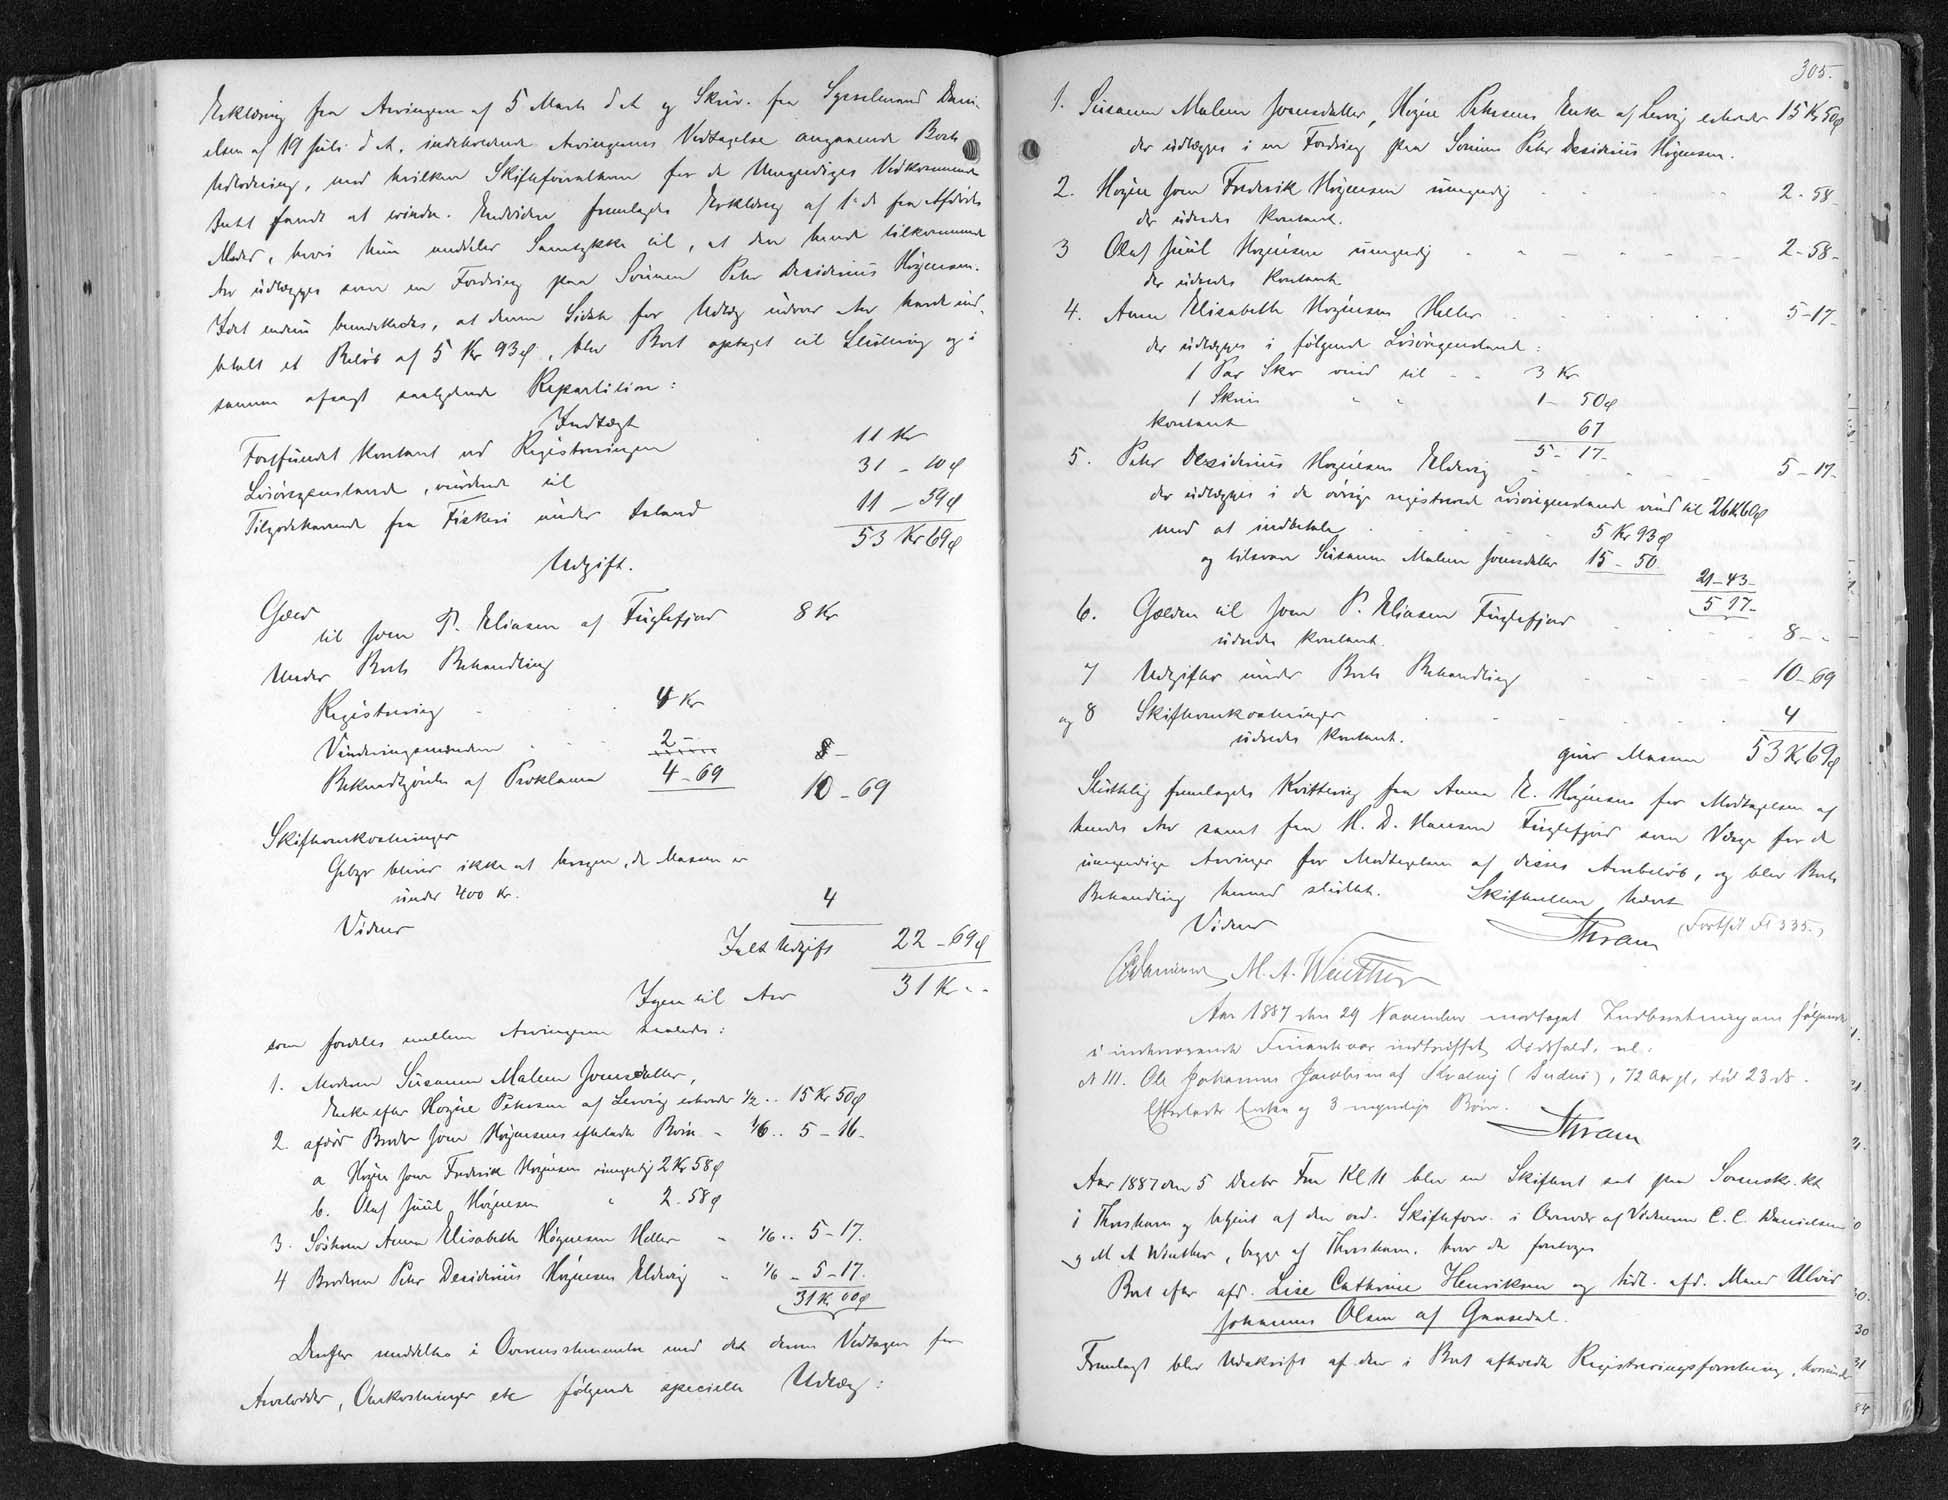 Erklæring fra Arvingen af 5 Marts d A og Skriv. fra Sysselmand Dani-
elsen af 19 Juli d A, indeholdende Arvingernes Vedtagelse angaaende Boets
Udlodning, mod hvilken Skifteforvalteren for de Umyndiges Vedkommende
Intet fandt at erindre. Endvidere fremlagdes Erklæring af f. d. fra Afdødes
Moder, hvori hun meddeler Samtykke til, at den hende tilkommende
Arv udlægges som en Fordring paa Sønnen Peter Desiderius Høgnesen.
Idet endnu bemærkedes, at denne Sidste for Udlæg udover Arv havde ind-
betalt et Beløb af 5 Kr 93 ø, blev Boet optaget til Slutning og i
samme afsagt saalydende Repartition:
Indtægt
Forefundet kontant ved Registreringen 11 Kr
Løsøregenstande, vurderede til 31 - 10 ø
Tilgodehavende fra Fiskeri under Island 11 - 59 ø
53 Kr 69 ø
Udgift.
Gæld
til Joen P. Eliasen af Fuglefjord 8 Kr
Under Boets Behandling
Registrering 4 Kr
Vurderingsmændene 2 - 8 -
Bekendtgjørelse af Proklama 4 - 69 10 - 69
Skifteomkostninger
Gebyr bliver ikke at beregne, da Massen er
under 400 Kr.
Vidner 4
Ialt Udgift 22 - 69 ø
Igen til Arv 31 Kr - -
som fordeles mellem Arvingerne saaledes:
1. Moderen Susanne Malene Joensdatter,
Enke efter Høgne Petersen af Lervig erholder 1/2 .. 15 Kr 50 ø
2. afdøde Broder Joen Høgnesens efterladte Børn - 1/6 .. 5 - 16 -
a Høgne Joen Frederik Høgnesen umyndig 2 Kr 58 ø
b. Olaf Juul Høgnesen " 2 - 58 ø
3. Søsteren Anna Elisabeth Høgnesen Heller - 1/6 .. 5 - 17.
4 Broderen Peter Desiderius Høgnesen Eldevig - 1/6 - 5 - 17.
31 Kr 00 ø
Derefter meddeltes i Overensstemmelse med det derom Vedtagne for
Arvelodder, Omkostninger etc følgende specielle Udlæg:
305.
1. Susanne Malene Joensdatter, Høgne Petersens Enke af Lervig erholder 15 Kr 50 ø
der udlægges i en Fordring paa Sønnen Peter Desiderius Høgnesen.
2. Høgne Joen Frederik Høgnesen umyndig 2 - 58 -
der udredes kontant.
3 Olaf Juul Høgnesen umyndig 2 - 58 -
der udredes kontant
4. Anna Elisabeth Høgnesen Heller 5 - 17 -
der udlægges i følgende Løsøregenstande:
1 Par Skr vurd til - - 3 Kr
1 Skrin " " 1 - 50 ø
kontant 67
5 - 17 -
5. Peter Desiderius Høgnesen Eldevig 5 - 17 -
der udlægges i de øvrige registrerede Løsøregenstande vurd til 26 Kr 60 ø
mod at indbetale 5 Kr 93 ø
og tilsvare Susanne Malene Joensdatter 15 - 50
21 - 43 -
5 17 -
6. Gælden til Joen P. Eliasen Fuglefjord 8 - -
udredes kontant.
7 Udgifter under Boets Behandling 10 - 69
og 8 Skifteomkostninger 4
udredes kontant.
giver Massen 53 Kr 69 ø
Sluttelig fremlagdes Kvittering fra Anna E. Høgnesen for Modtagelsen af
hendes Arv samt fra H. D. Hansen Fuglefjord som Værge for de
umyndige Arvinger for Modtagelsen af disses Arvebeløb, og blev Boets
Behandling hermed sluttet. Skifteretten hævet
Vidner Thram (Fortsat Fl 335.)
CCDanielsen M. A. Winther
Aar 1887 den 29 November modtaget Indberetning om følgende
i indeværende Finantsaar indtruffet Dødsfald, nl:
№ 111. Ole Johannes Jacobsen af Kvalvig , 72 Aar gl, død 23 ds.
Efterlader Enke og 3 myndige Børn.
Thram
Aar 1887 den 5 Decbr Fm Kl 11 blev en Skifteret sat paa Sorenskr. kt
i Thorshavn og betjent af den ord. Skifteforv. i Overvær af Vidnerne C. C. Danielsen
og M A Winther, begge af Thorshavn. hvor da foretoges
Boet efter afd. Lise Cathrine Henriksen og tidl. afd. Mand Ulrik
Johannes Olsen af Gaasedal.
Fremlagt blev Udskrift af den i Boet afholdte Registreringsforretning, hvorunder